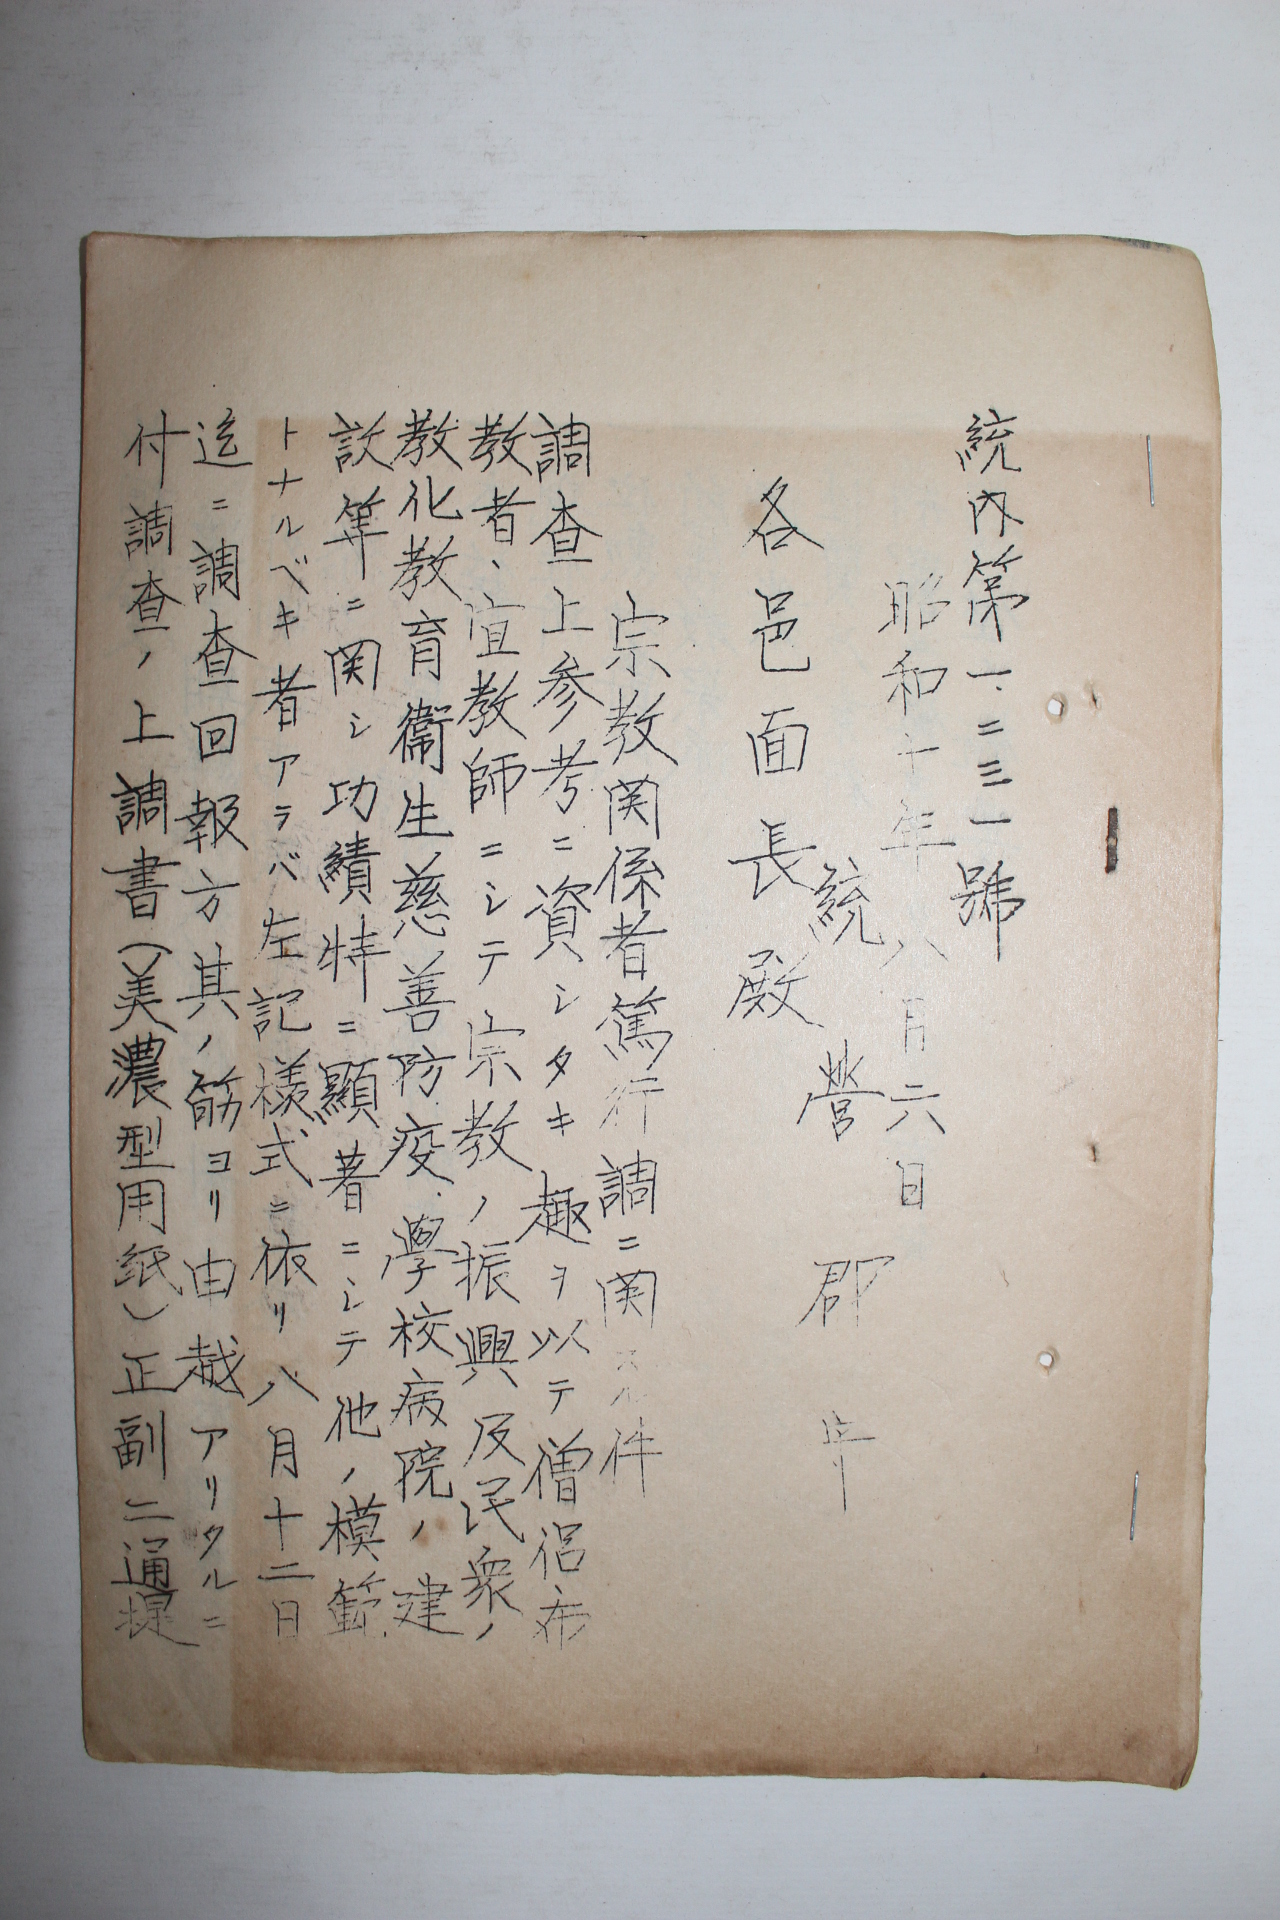 統内第一、二三一號
昭和十年八月六日
統營郡守
各邑面長殿
宗教関係者篤行調ニ関スル件
調査上参考ニ資シタキ趣ヲ以テ僧侶布
教者、宣教師ニシテ宗教ノ振興及民衆ノ
教化教育衛生慈善防疫、學校病院ノ建
設等ニ関シ功績特ニ顯著ニシテ他ノ模範
トナルベキ者アラバ左記様式ニ依リ八月十二日
迄ニ調査回報方其ノ筋ヨリ由越アリタルニ
付調査ノ上調書(美濃型用紙)正副二通提